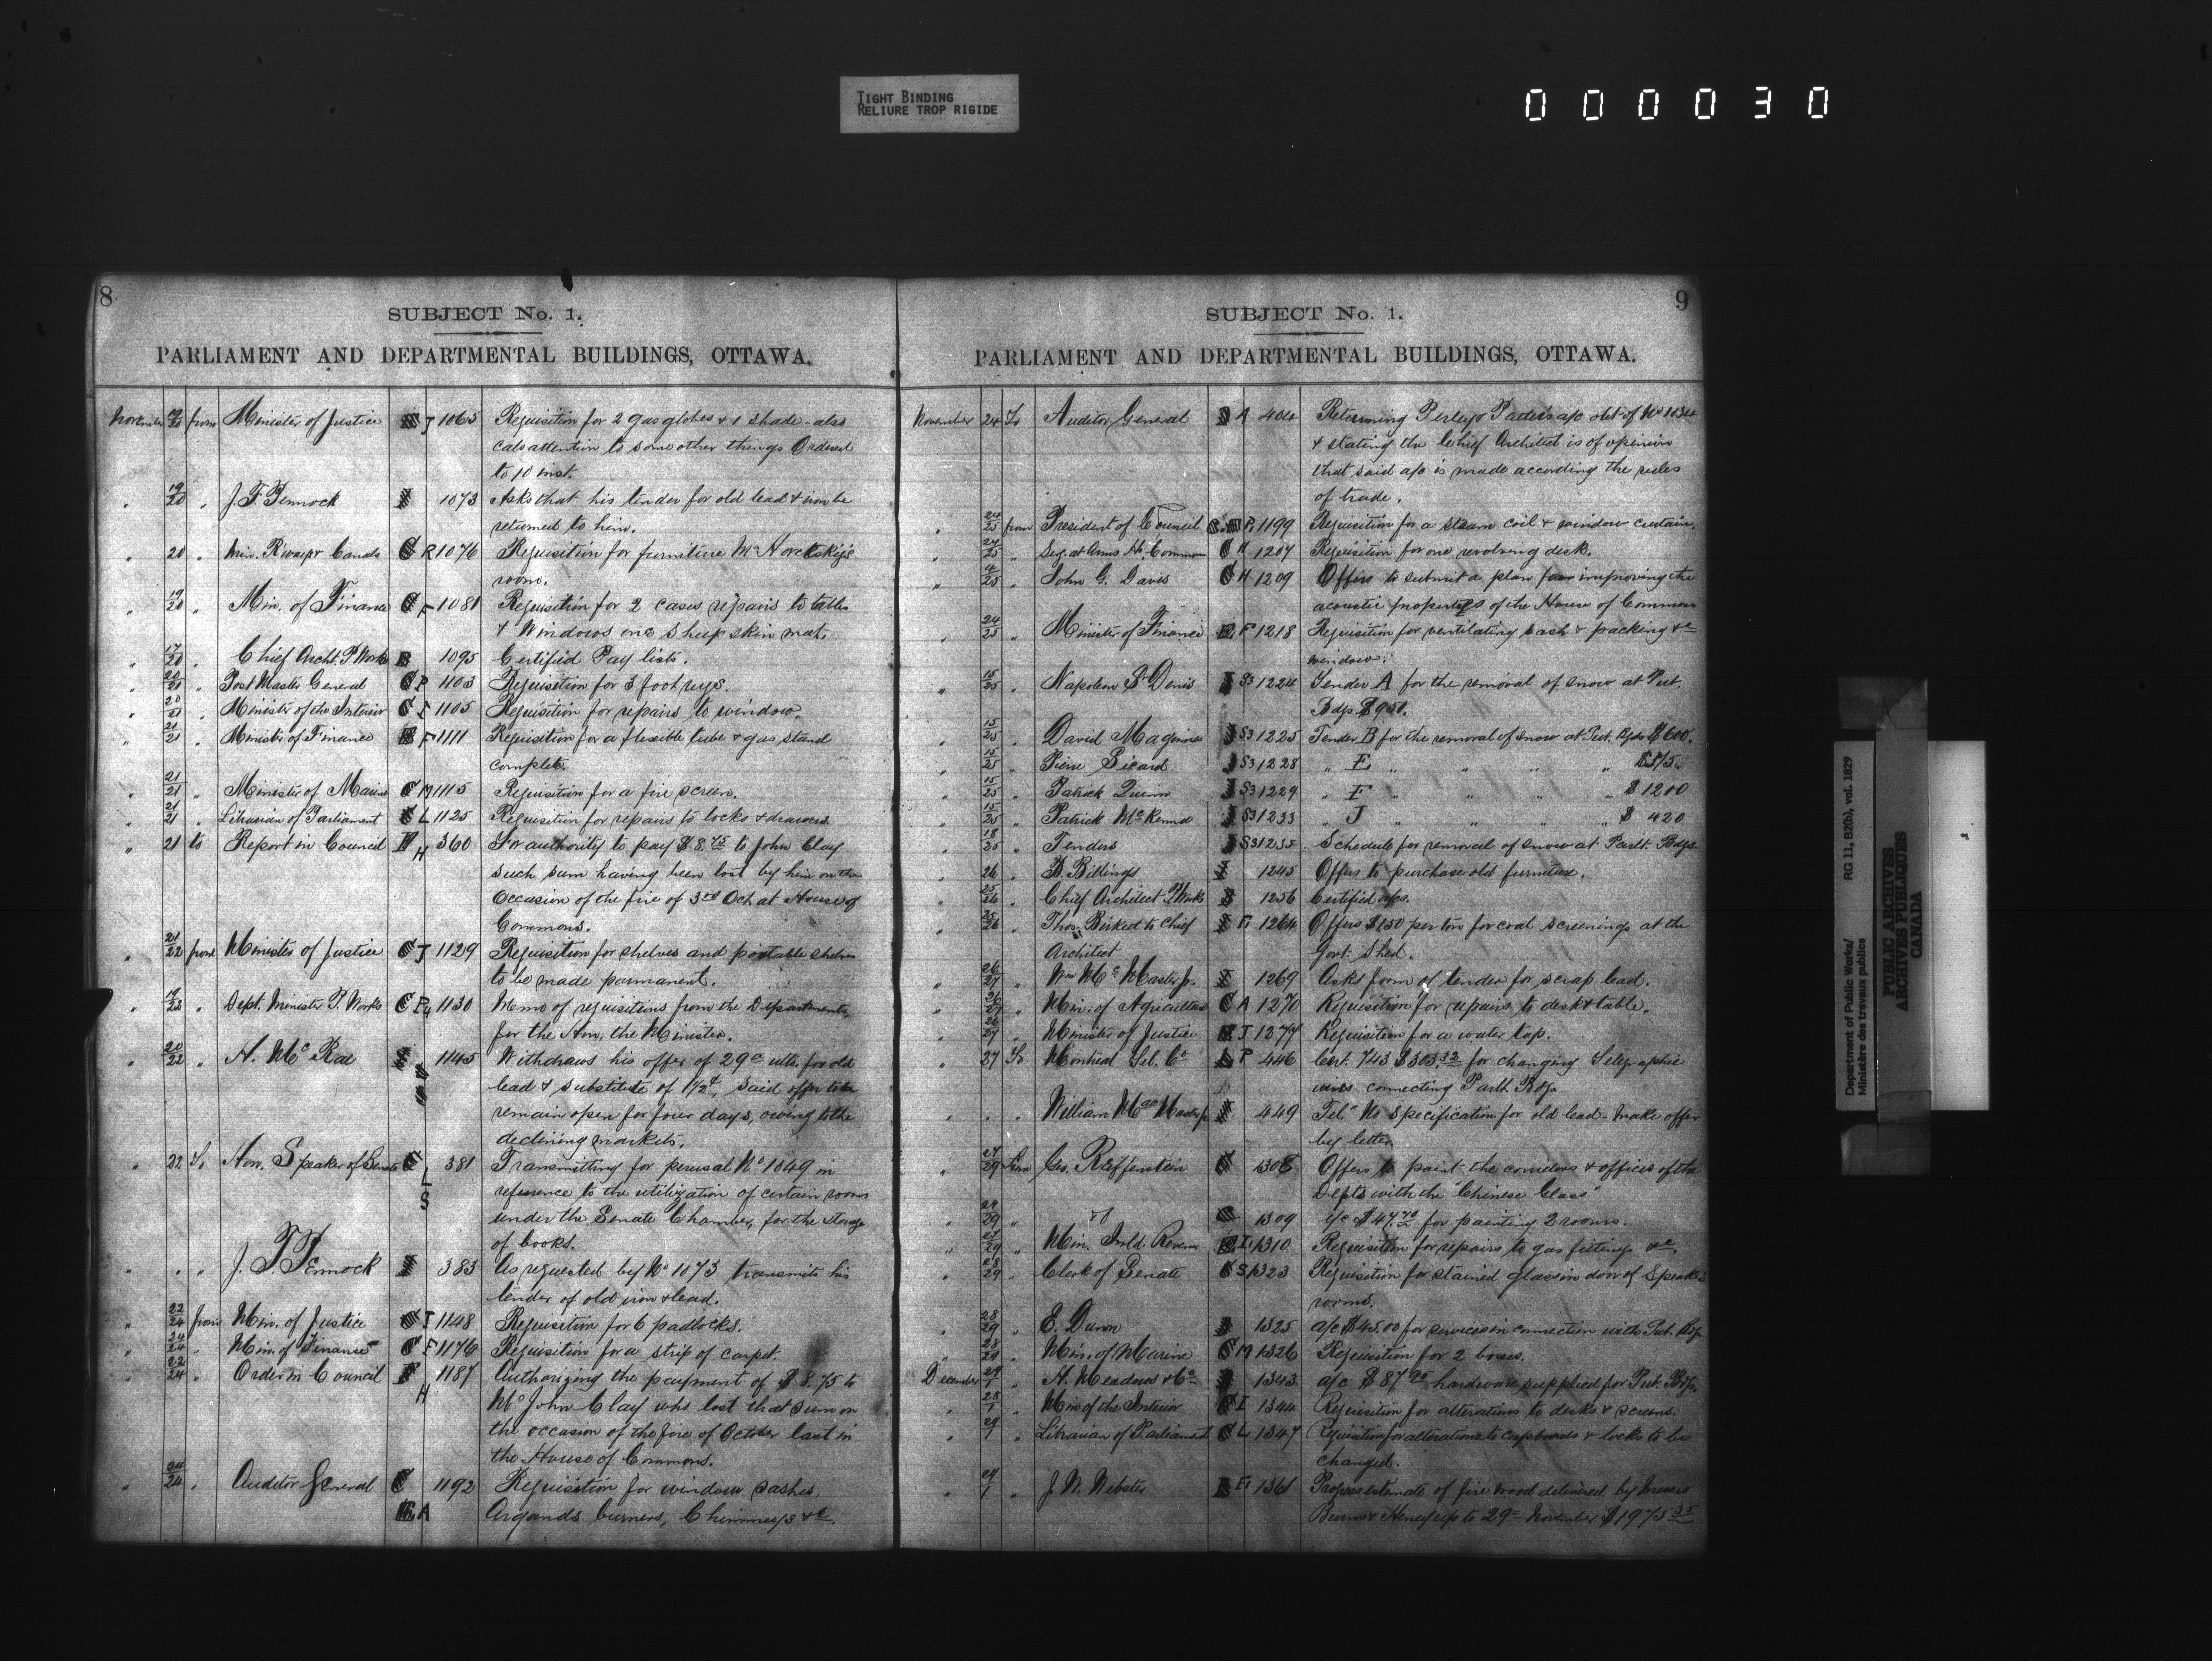 TIGHT BINDING
RELIURE TROP RIGIDE
000030
8
SUBJECT No. 1.
PARLIAMENT AND DEPARTMENTAL BUILDINGS, OTTAWA.
November 19/20 from Minister of Justice J 1065 Requisition for 2 gas globes & 1 shade - also
calls attention to some other things Ordered
to 10 inst.
" 19/20 " 1073 Asks that his tender for old lead & iron be
returned to him.
" 20 " Min. R'ways & Canals C R 1076 Requisition for furniture Mr Horetskiy's
room.
" 19/20 " Min. of Finance C F 1081 Requisition for 2 cases repairs to tables
& Windows one Sheep skin mat.
" 17/20 " Chief Archt. P. Works 1095 Certified Pay lists.
" 20/21 " Post Master General C P 1103 Requisition for 3 foot rugs.
" 20/21 " Minister of the Interior C I 1105 Requisition for repairs to window.
" 21/21 " Minister of Finance F 1111 Requisition for a flexible tube & gas stand
complete.
" 21/21 " Minister of Marine C M 1115 Requisition for a fire screen.
" 21/21 " Librarian of Parliament L 1125 Requisition for repairs to locks & drawers
" 21 to Report in Council H 360 For authority to pay $8.75 to John Clay
such sum having been lost by him on the
Occasion of the fire of 3rd Oct. at House of
Commons.
" 21/22 from Minister of Justice C J 1129 Requisition for shelves and portable shelves
to be made permanent.
" 19/22 " Dept. Minister P. Works C P4 1130 Memo of requisitions from the Departments
for the Hon. the Minister.
" 20/22 " H. McRae 1145 Withdraws his offer of 29c ults. for old
lead & substitute of 1 1/2c, said offer to
remain open for four days, owing to the
declining markets.
" 22 To Hon. Speaker of Senate L S 381 Transmitting for perusal No 1049 in
reference to the utilization of certain rooms
under the Senate Chamber, for the storage
of books.
" " " 383 As requested by No 1073 transmits his
tender of old iron & lead.
" 22/24 from Min. of Justice J 1148 Requisition for 6 padlocks.
" 24/24 " Min. of Finance C F 1176 Requisition for a strip of carpet.
" 22/24 " Order in Council H 1187 Authorizing the payment of $8.75 to
Mr John Clay who lost that sum on
the occasion of the fire of October last in
the House of Commons.
" 24/24 " Auditor General C 1192 Requisition for window sashes,
A Argands burners, Chimneys &c.
9
SUBJECT No. 1.
PARLIAMENT AND DEPARTMENTAL BUILDINGS, OTTAWA.
November 24 To Auditor General A 404 Returning Perley & Pattee's a/c obt. of No 1034
& stating the Chief Architect is of opinion
that said a/c is made according the rules
of trade.
" 24/25 from President of Council P. 1199 Requisition for a steam coil & window curtain.
" 24/25 " Serg. at Arms H. Commons C H 1207 Requisition for one revolving desk.
" 4/25 " John G. Davis C H 1209 Offers to submit a plan for improving the
acoustic properties of the House of Commons
" 24/25 " Minister of Finance F 1218 Requisition for ventilating sash & packing &c
window.
" 15/25 " Napoleon St Denis S3 1224 Tender A for the removal of snow at Put.
Bdgs. $951.
" 15/25 " David Maguire S3 1225 Tender B for the removal of snow at Put. Bgds $600.
" 15/25 " Pierre Sicard S3 1228 " E " " " $575.
" 15/25 " Patrick Quinn S3 1229 " F " " " $1200
" 15/25 " Patrick McKenna S3 1233 " J " " " $ 420
" 18/25 " Tenders S3 1235 Schedule for removal of snow at Parlt. Bdgs
" 26 " B. Billings 1245 Offers to purchase old furniture.
" 25/26 " Chief Architect P. Works 1256 Certified a/cs.
" 25/26 " Thos. Birkett to Chief F1 1264 Offers $1.50 per ton for coal screenings at the
Architect Govt. Shed.
" 26/27 " Wm McMaster Jr. 1269 Asks form of tender for scrap lead.
" 26/27 " Min. of Agriculture C A 1270 Requisition for repairs to desk & table.
" 26/27 " Minister of Justice J 1277 Requisition for a water tap.
" 27 To Montreal Tel. Co T 446 Cert. 743 $303.32 for changing Telegraphic
wires connecting Parlt. Bdgs
" " " William MacMaster Jr 449 Tel" No specification for old lead - make offer
by letter.
" 27/29 from Geo. Reiffenstein 1308 Offers to paint the corridors & offices of the
Depts with the "Chinese Glass"
" 29 " do 1309 a/c $47.70 for painting 2 rooms.
" 27/29 " Min. Inld. Revenue I1 1310 Requisition for repairs to gas fittings &c.
" 28/29 " Clerk of Senate C S 1323 Requisition for stained glass in door of Speaker's
rooms.
" 28/29 " 1325 a/c $45.00 for services in connection with Put. Bdgs
" 28/29 " Min. of Marine C M 1326 Requisition for 2 boxes.
December 29/1 " H. Meadows & Co 1343 a/c $87.90 hardware supplied for Put. Bdgs.
" 28/1 " Min of the Interior I 1344 Requisition for alterations to desks & screens.
" 29/1 " Librarian of Parliament C L 1347 Requisition for alterations to cupboards & locks to be
changed.
" 29/1 " J. W. Webster F1 1361 Progress estimate of fire wood delivered by Messrs
Burns & Heney up to 29th November $1975.35
Department of Public Works/ RG 11, B2(b), vol. 1829
Ministère des travaux publics
PUBLIC ARCHIVES
ARCHIVES PUBLIQUES
CANADA